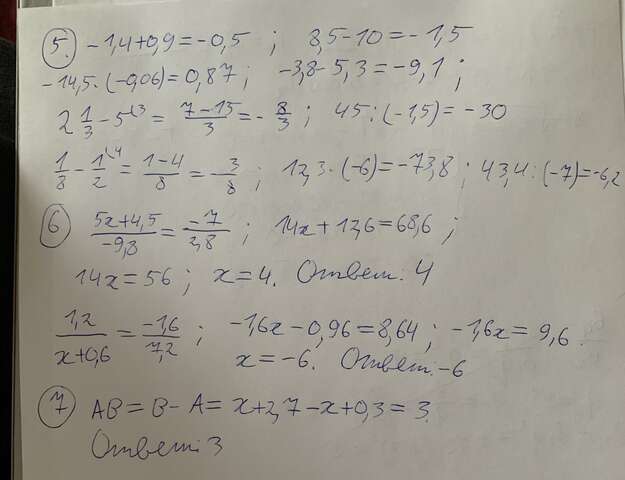 5. -1,4+0,9=-0,5 ; 8,5-10=-1,5
-14,5·(-0,06)=0,87; -3,8-5,3=-9,1;
2 1/3 - 5^(3 = (7-15)/3 = -8/3; 45:(-1,5)=-30
1/8 - 1/2^(4 = (1-4)/8 = -3/8; 12,3·(-6)=-73,8; 43,4:(-7)=-6,2
6 (5x+4,5)/(-9,8) = (-7)/(2,8); 14x+12,6=68,6;
14x=56; x=4. Ответ: 4
1,2/(x+0,6) = (-1,6)/(7,2); -1,6x-0,96=8,64; -1,6x=9,6.
x=-6. Ответ:-6
7 AB=B-A=x+2,7-x+0,3=3.
Ответ: 3